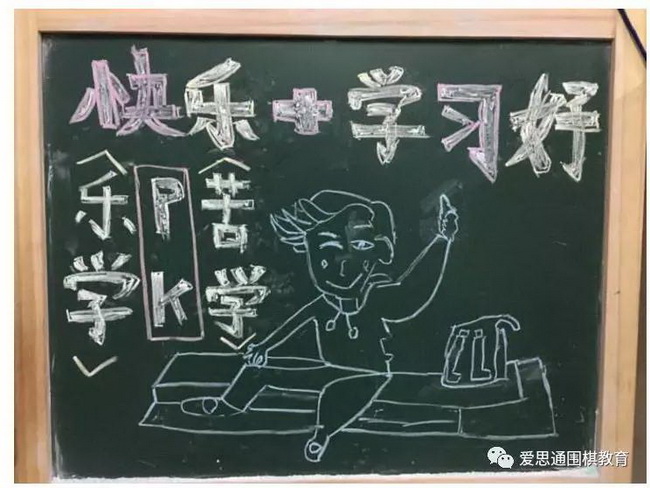 快乐+学习好
〈乐学〉
PK
〈苦学〉
爱思通围棋教育